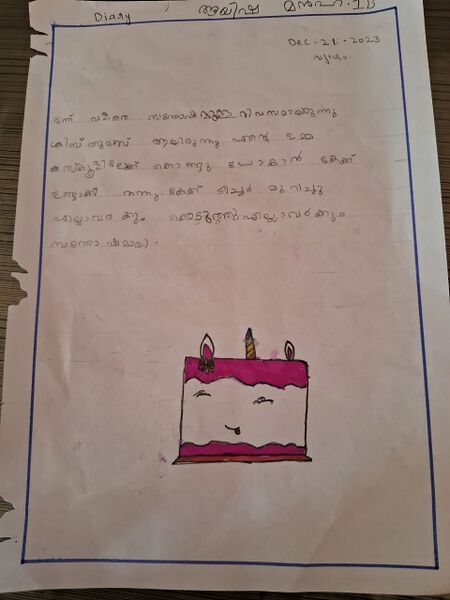 Diary ആയിഷ മൻഹ. 1B
Dec. 21. 2023
വ്യാഴം.
ഇന്ന് വളരെ സന്തോഷമുള്ള ദിവസമായിരുന്നു
ക്രിസ്തുമസ് ആയിരുന്നു എന്റെ ഉമ്മ
സ്കൂളിലേക്ക് കൊണ്ടു പോകാൻ കേക്ക്
ഉണ്ടാക്കി തന്നു. കേക്ക് ടീച്ചർ മുറിച്ചു
എല്ലാവർകും കൊടുത്തു എല്ലാവർകും
സന്തോഷമായി.